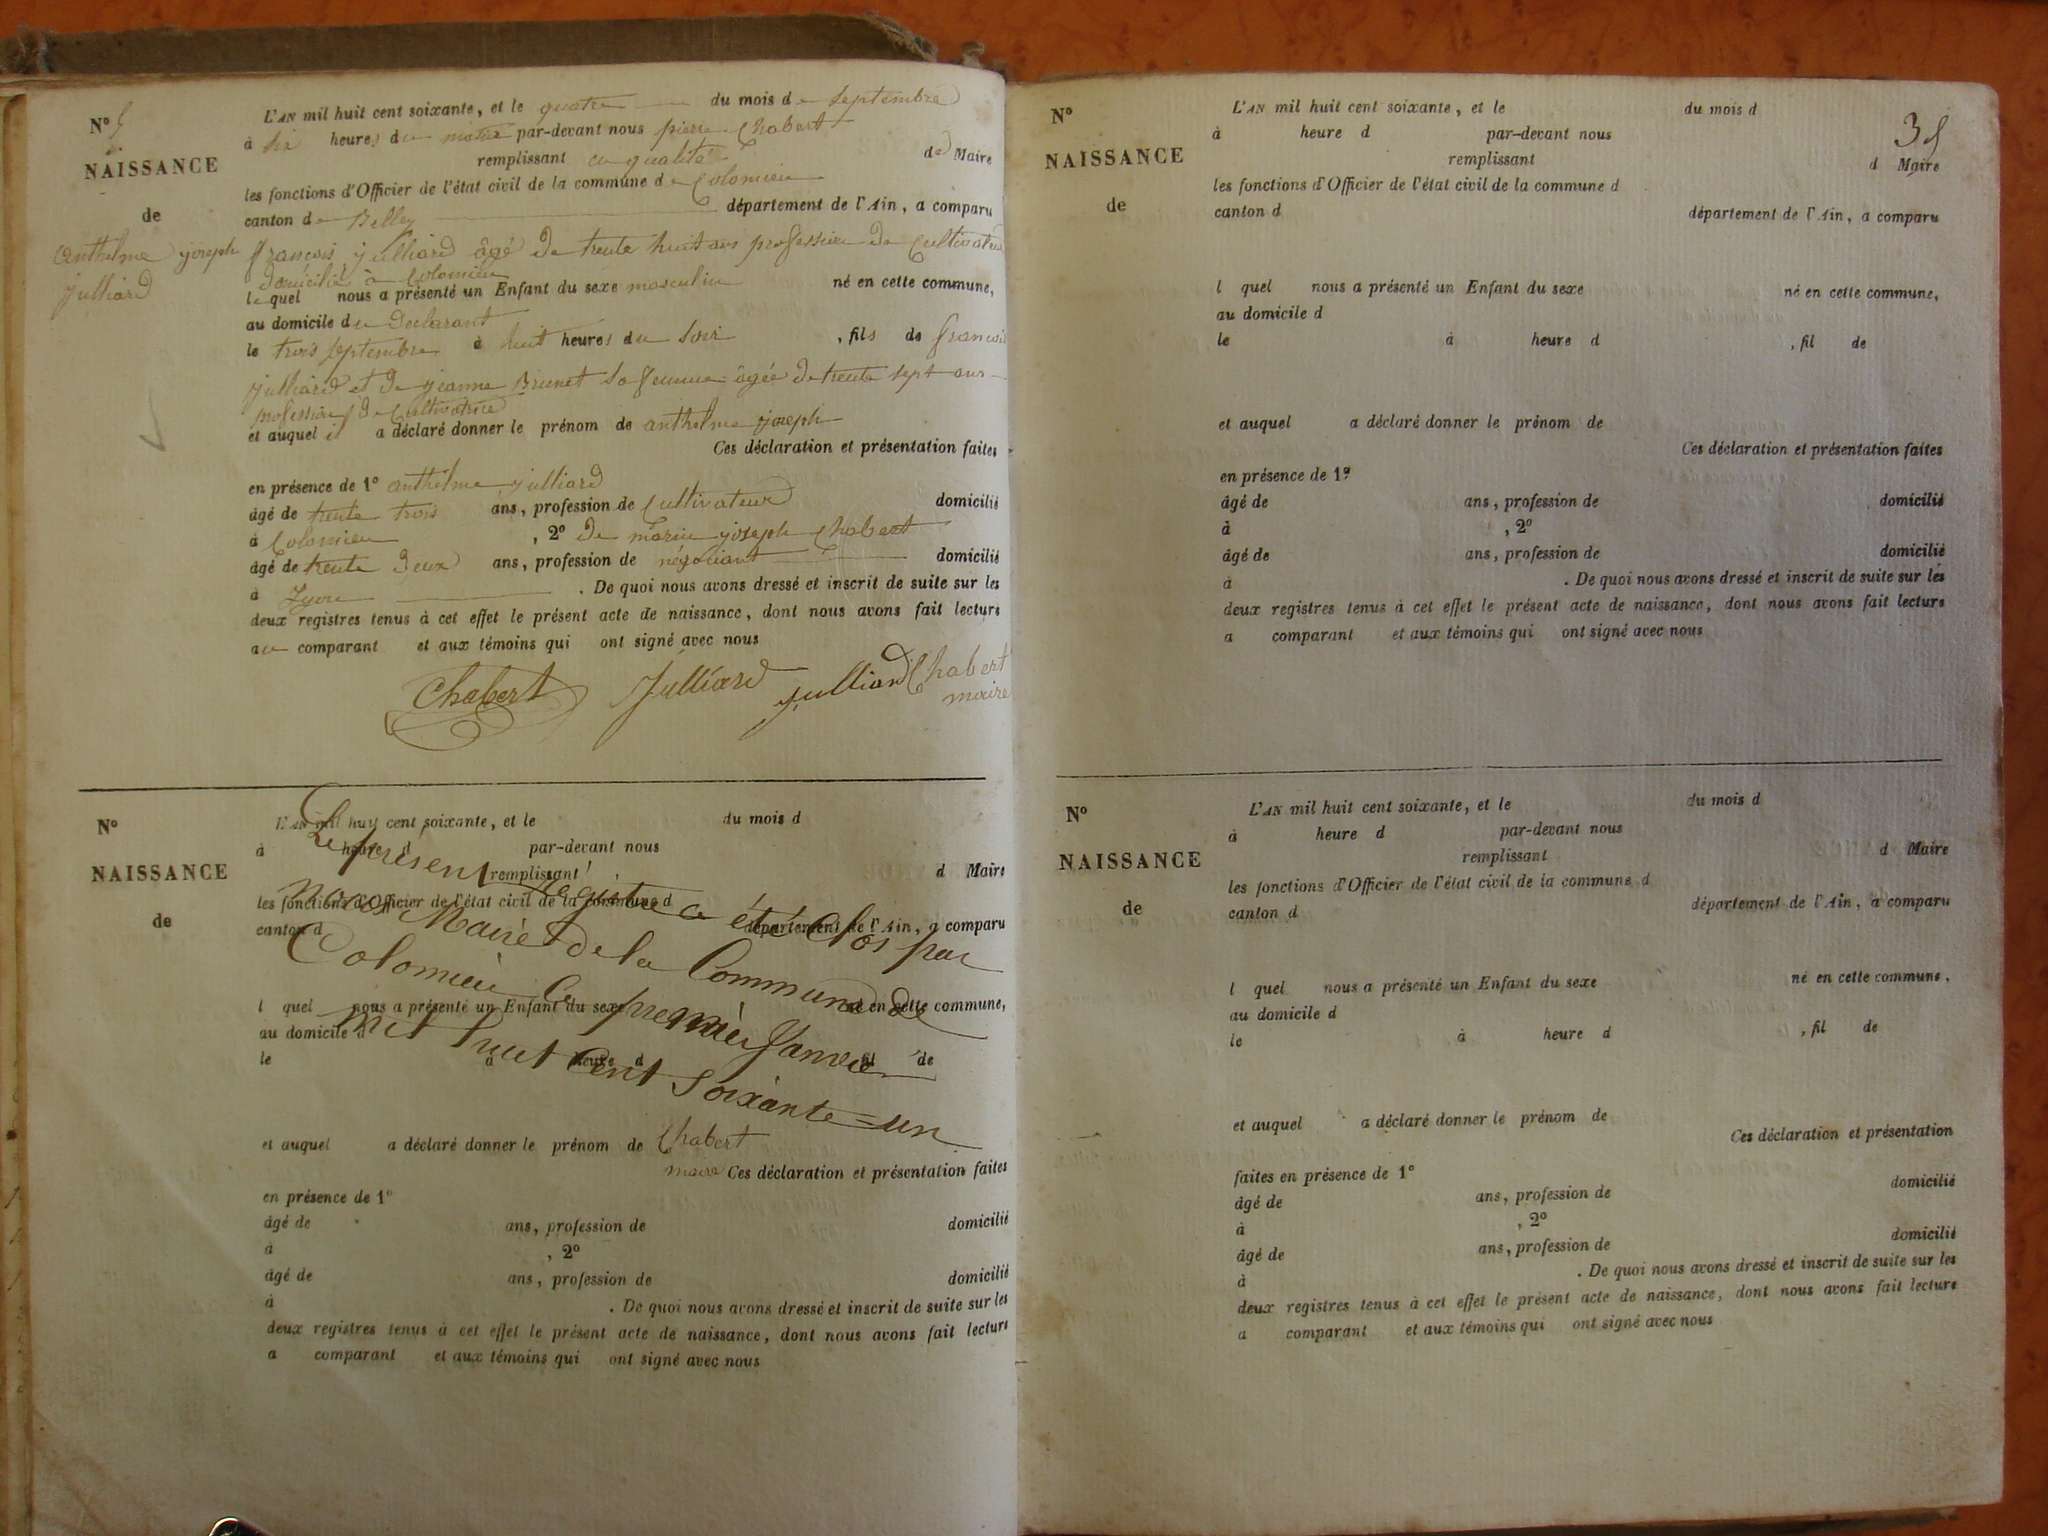 N° 5
NAISSANCE
de
anthelme joseph
julliard
L'AN mil huit cent soixante, et le quatre du mois de septembre
à six heures du matin par-devant nous pierre Chabert
remplissant en qualité de Maire
les fonctions d'Officier de l'état civil de la commune de Colomieu
canton de Belley département de l'Ain, a comparu
françois julliard âgé de trente huit ans profession de Cultivateur
domicilié à Colomieu
lequel nous a présenté un Enfant du sexe masculin né en cette commune,
au domicile du Déclarant
le trois septembre à huit heures du soir , fils de francois
julliard et de jeanne Brunet sa femme âgée de trente sept ans
profession de Cultivatrice
et auquel il a déclaré donner le prénom de anthelme joseph
Ces déclaration et présentation faites
en présence de 1° anthelme julliard
âgé de trente trois ans, profession de Cultivateur domicilié
à Colomieu , 2° de marin joseph Chabert
âgé de trente deux ans, profession de négociant domicilié
à Lyon . De quoi nous avons dressé et inscrit de suite sur les
deux registres tenus à cet effet le présent acte de naissance, dont nous avons fait lecture
au comparant et aux témoins qui ont signé avec nous
Chabert Julliard julliard Chabert
maire
N°
NAISSANCE
de
L'AN mil huit cent soixante, et le du mois d
à heure d par-devant nous
remplissant d Maire
les fonctions d'Officier de l'état civil de la commune d
canton d département de l'Ain, a comparu
l quel nous a présenté un Enfant du sexe né en cette commune,
au domicile d
le à heure d , fil de
Le présent registre a été Clos par
nous Maire de la Commune de
Colomieu Ce premier Janvier
mil huit Cent Soixante=un
et auquel a déclaré donner le prénom de Chabert
maire Ces déclaration et présentation faites
en présence de 1°
âgé de ans, profession de domicilié
à , 2°
âgé de ans, profession de domicilié
à . De quoi nous avons dressé et inscrit de suite sur les
deux registres tenus à cet effet le présent acte de naissance, dont nous avons fait lecture
a comparant et aux témoins qui ont signé avec nous
35
N°
NAISSANCE
de
L'AN mil huit cent soixante, et le du mois d
à heure d par-devant nous
remplissant d Maire
les fonctions d'Officier de l'état civil de la commune d
canton d département de l'Ain, a comparu
l quel nous a présenté un Enfant du sexe né en cette commune,
au domicile d
le à heure d , fil de
et auquel a déclaré donner le prénom de
Ces déclaration et présentation faites
en présence de 1°
âgé de ans, profession de domicilié
à , 2°
âgé de ans, profession de domicilié
à . De quoi nous avons dressé et inscrit de suite sur les
deux registres tenus à cet effet le présent acte de naissance, dont nous avons fait lecture
a comparant et aux témoins qui ont signé avec nous
N°
NAISSANCE
de
L'AN mil huit cent soixante, et le du mois d
à heure d par-devant nous
remplissant d Maire
les fonctions d'Officier de l'état civil de la commune d
canton d département de l'Ain, a comparu
l quel nous a présenté un Enfant du sexe né en cette commune,
au domicile d
le à heure d , fil de
et auquel a déclaré donner le prénom de
Ces déclaration et présentation
faites en présence de 1°
âgé de ans, profession de domicilié
à , 2°
âgé de ans, profession de domicilié
à . De quoi nous avons dressé et inscrit de suite sur les
deux registres tenus à cet effet le présent acte de naissance, dont nous avons fait lecture
a comparant et aux témoins qui ont signé avec nous